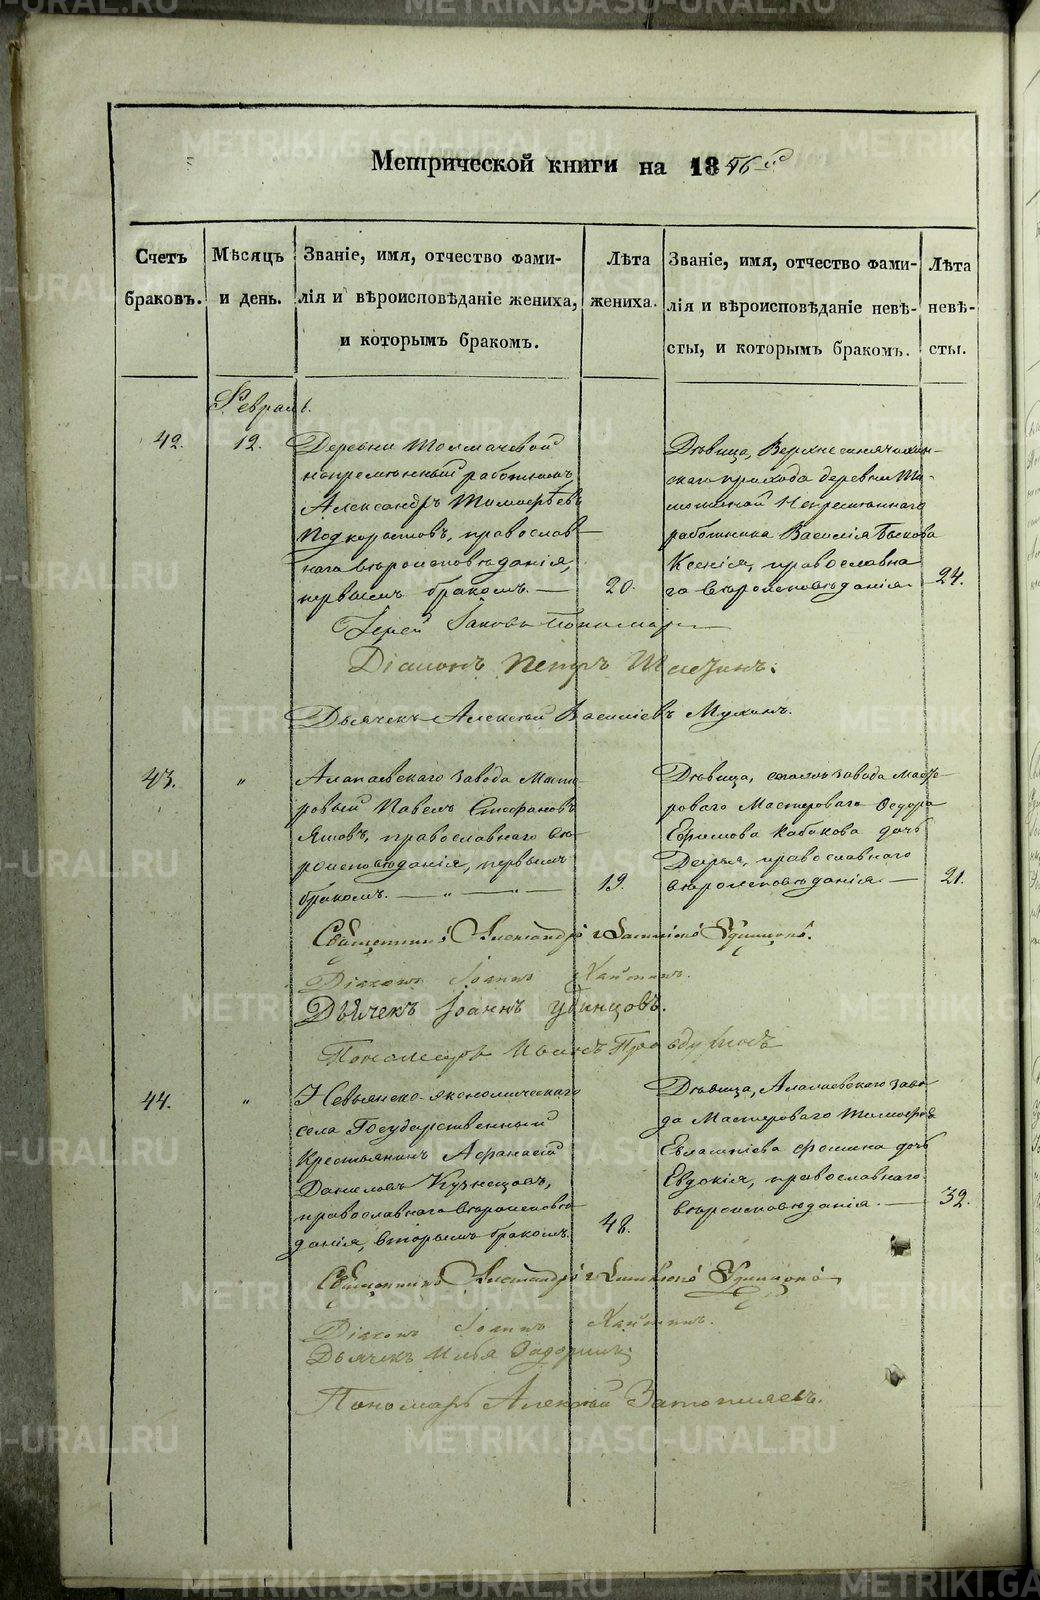 METRIKI.GASO-URAL.RU
Метрической книги на 1846й
Счетъ браковъ.
Мѣсяцъ и день.
Званіе, имя, отчество фами-
лія и вѣроисповѣданіе жениха,
и которымъ бракомъ.
Лѣта
жениха.
Званіе, имя, отчество фами-
лія и вѣроисповѣданіе невѣ-
сты, и которымъ бракомъ.
Лѣта
невѣ-
сты.
Февраль.
42.
12.
Деревни Толмачевой
непремѣнный работникъ
Александръ Тимофѣевъ
Подкорытовъ, православ-
наго вѣроисповѣданія,
первымъ бракомъ.
20.
Дѣвица, Верхнесинячихин-
скаго прихода деревни
непремѣннаго
работника Василія Быкова
Ксенія, православна
го вѣроисповѣданія.
24.
Іерей Іаковъ Пономарев
Діаконъ Петръ
Дьячекъ Алексѣй Василіевъ Мухинъ.
43.
"
Алапаевскаго завода Масте
ровый Павелъ Стефановъ
Яшовъ, православнаго вѣ
роисповѣданія, первымъ
бракомъ. — " — " —
19.
Дѣвица, завода Масте
роваго Мастероваго Ѳедора
Ефимова Кабакова дочь
Дарья, православнаго
вѣроисповѣданія. —
21.
Священникъ Александръ Удинцовъ.
Діаконъ Іоаннъ
Дьячекъ Іоаннъ Удинцовъ.
Пономарь Иванъ
44.
"
Невьянско-экономическаго
села Государственный
Крестьянинъ Афанасій
Даниловъ Кузнецовъ,
православнаго вѣроисповѣ
данія, вторымъ бракомъ.
48.
Дѣвица, Алапаевскаго заво
да Мастероваго Тимофея
Евлампіева Фомина дочь
Евдокія, православнаго
вѣроисповѣданія. —
32.
Священникъ Александръ Удинцовъ
Діаконъ Іоаннъ
Дьячекъ Илья
Пономарь Алексѣй Затопляевъ.